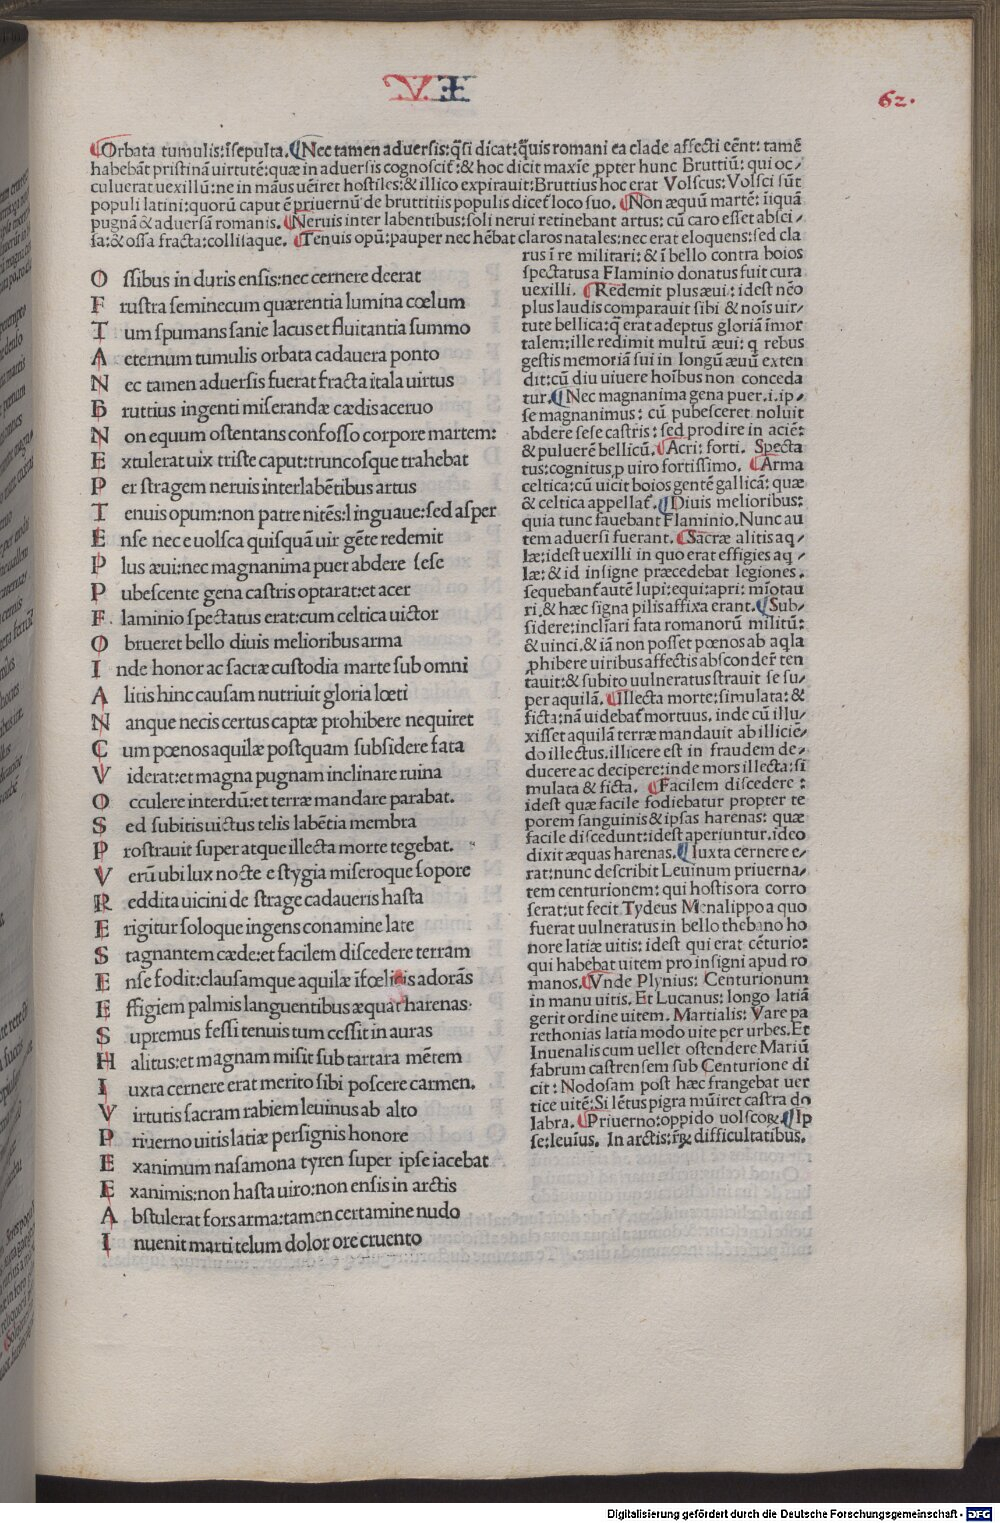 VI
62.
Orbata tumulis:īsepulta. Nec tamen aduersis:q̄si dicat:q̄uis romani ea clade affecti eēnt: tamē
habebāt pristinā uirtutē:quæ in aduersis cognoscit̄:& hoc dicit maxīe ꝓpter hunc Bruttiū: qui oc/
culuerat uexillū:ne in māus uēiret hostiles:& illico expirauit:Bruttius hoc erat Volscus:Volsci sūt
populi latini:quorū caput ē priuernū de bruttitiis populis dicet̄ loco suo. Non æquū martē: īiquā
pugnā & aduersā romanis. Neruis inter labentibus:soli nerui retinebant artus: cū caro esset absci/
sa:& ossa fracta:collisaque. Tenuis opū:pauper nec hēbat claros natales:nec erat eloquens:sed cla
O ssibus in duris ensis:nec cernere deerat
F rustra seminecum quærentia lumina cœlum
T um spumans sanie lacus et fluitantia summo
A eternum tumulis orbata cadauera ponto
N ec tamen aduersis fuerat fracta itala uirtus
B ruttius ingenti miserandæ cædis aceruo
N on equum ostentans confosso corpore martem:
E xtulerat uix triste caput:truncosque trahebat
P er stragem neruis interlabētibus artus
T enuis opum:non patre nitēs:linguaue:sed asper
E nse nec e uolsca quisquā uir gēte redemit
P lus æui:nec magnanima puer abdere sese
P ubescente gena castris optarat:et acer
F laminio spectatus erat:cum celtica uictor
O brueret bello diuis melioribus arma
I nde honor ac sacræ custodia marte sub omni
A litis hinc causam nutriuit gloria lœti
N anque necis certus captæ prohibere nequiret
C um pœnos aquilæ postquam subsidere fata
V iderat:et magna pugnam inclinare ruina
O cculere interdū:et terræ mandare parabat.
S ed subitis uictus telis labētia membra
P rostrauit super atque illecta morte tegebat.
V erū ubi lux nocte e stygia miseroque sopore
R eddita uicini de strage cadaueris hasta
E rigitur soloque ingens conamine late
S tagnantem cæde:et facilem discedere terram
E nse fodit:clausamque aquilæ īfœlicis adorās
E ffigiem palmis languentibus æquat harenas.
S upremus fessi tenuis tum cessit in auras
H alitus:et magnam misit sub tartara mētem
I uxta cernere erat merito sibi poscere carmen.
V irtutis sacram rabiem leuinus ab alto
P riuerno uitis latiæ persignis honore
E xanimum nasamona tyren super ipse iacebat
E xanimis:non hasta uiro:non ensis in arctis
A bstulerat fors arma:tamen certamine nudo
I nuenit marti telum dolor ore cruento
rus ī re militari: & ī bello contra boios
spectatus a Flaminio donatus fuit cura
uexilli. Redemit plus æui: idest nēo
plus laudis comparauit sibi & noīs uir/
tute bellica:q̄ erat adeptus gloriā īmor
talem;ille redimit multū æui: q̄ rebus
gestis memoriā sui in longū æuū exten
dit:cū diu uiuere hoībus non conceda
tur. Nec magnanima gena puer.i.ip/
se magnanimus: cū pubesceret noluit
abdere sese castris: sed prodire in aciē:
& puluerē bellicū. Acri: forti. Specta
tus:cognitus ꝓ uiro fortissimo. Arma
celtica:cū uicit boios gentē gallicā: quæ
& celtica appellat̄. Diuis melioribus:
quia tunc fauebant Flaminio. Nunc au
tem aduersi fuerant. Sacræ alitis aq/
læ:idest uexilli in quo erat effigies aq/
læ: & id insigne præcedebat legiones.
sequebant̄ autē lupi:equi:apri: mīotau
ri.& hæc signa pilis affixa erant. Sub/
sidere:inclīari fata romanorū militū:
& uinci. & iā non posset pœnos ab aq̄la
ꝓhibere uiribus affectis abscondeř ten
tauit:& subito uulneratus strauit se su/
per aquilā. Illecta morte:simulata: &
ficta:nā uidebat̄ mortuus. inde cū illu/
xisset aquilā terræ mandauit ab illiciē/
do illectus.illicere est in fraudem de/
ducere ac decipere:inde mors illecta:si
mulata & ficta. Facilem discedere:
idest quæ facile fodiebatur propter te
porem sanguinis & ipsas harenas: quæ
facile discedunt:idest aperiuntur.ideo
dixit æquas harenas. Iuxta cernere e/
rat:nunc describit Leuinum priuerna/
tem centurionem: qui hostis ora corro
serat:ut fecit Tydeus Menalippo a quo
fuerat uulneratus in bello thebano ho
nore latiæ uitis: idest qui erat cēturio:
qui habebat uitem pro insigni apud ro
manos. Vnde Plynius: Centurionum
in manu uitis. Et Lucanus: longo latiā
gerit ordine uitem. Martialis: Vare pa
rethonias latia modo uite per urbes. Et
Inuenalis cum uellet ostendere Mariū
fabrum castrensem sub Centurione di
cit: Nodosam post hæc frangebat uer
tice uitē:Si lētus pigra mūiret castra do
labra. Priuerno:oppido uolscoꝝ. Ip
se:leuius. In arctis: difficultatibus.
Digitalisierung gefördert durch die Deutsche Forschungsgemeinschaft - DFG